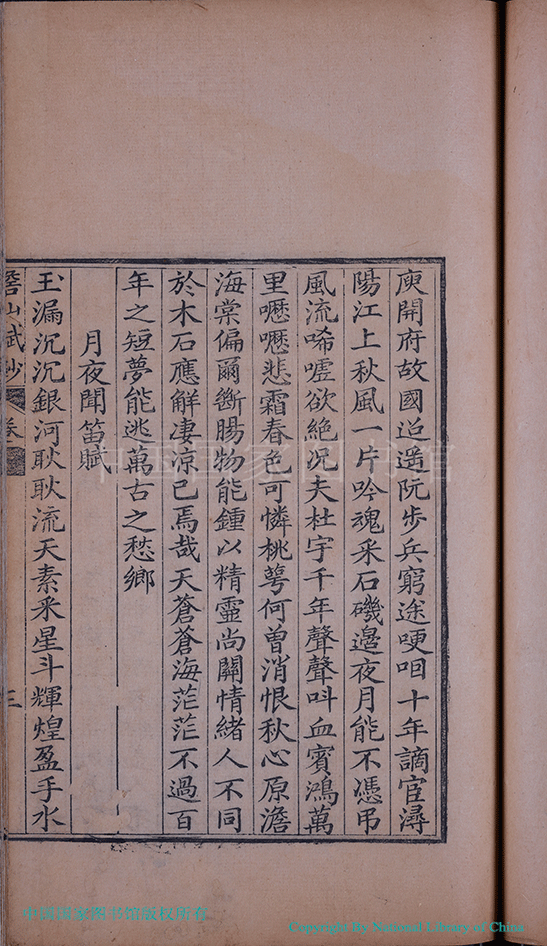 庾開府故國迢遥阮步兵窮途哽咽十年謫宦潯
陽江上秋風一片吟魂采石磯邉夜月能不憑弔
風流唏嘘欲絶况夫杜宇千年聲聲呌血賓鴻萬
里嚦嚦悲霜春色可憐桃萼何曾消恨秋心原澹
海棠偏爾斷腸物能鍾以精靈尚關情緒人不同
於木石應解凄凉已焉哉天蒼蒼海茫茫不過百
年之短夢能逃萬古之愁鄉
月夜聞笛賦
玉漏沉沉銀河耿耿流天素采星斗輝煌盈手水
山賦鈔 卷 三
中国国家图书馆
中国国家图书馆版权所有
Copyright By National Library of China